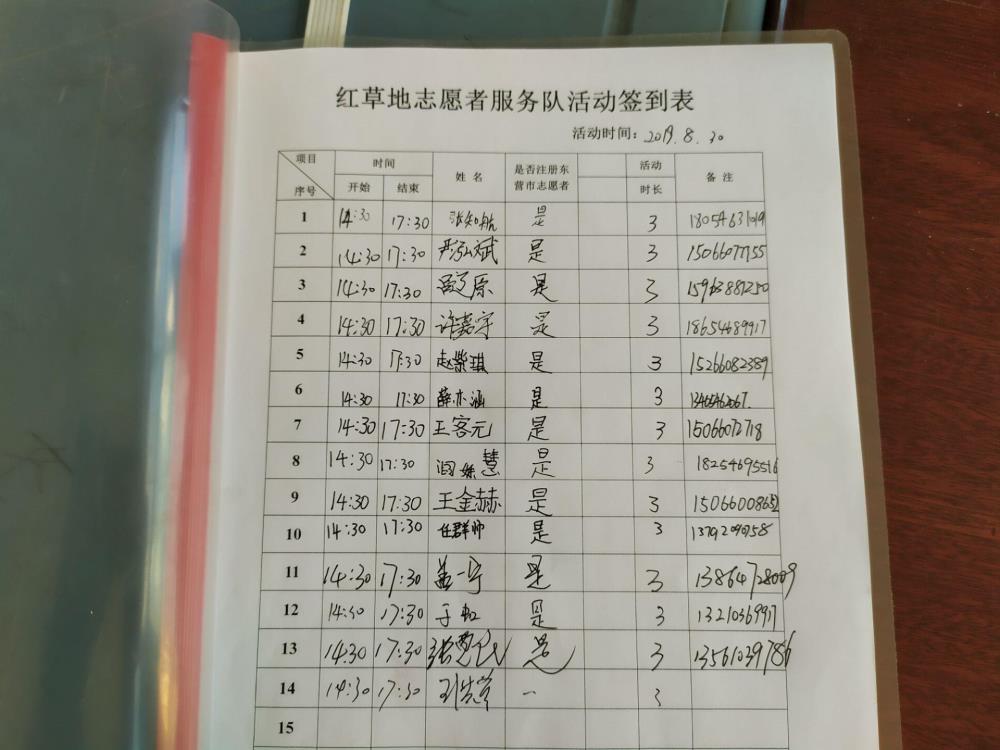 红草地志愿者服务队活动签到表
活动时间：2019.8.30
项目 序号 时间 开始 结束 姓名 是否注册东营市志愿者 活动时长 备注
1 14:30 17:30 张知航 是 3
2 14:30 17:30 严弘斌 是 3 15066077755
3 14:30 17:30 原 是 3 15963887250
4 14:30 17:30 许嘉宇 是 3 18654689917
5 14:30 17:30 赵崇琪 是 3 15266082389
6 14:30 17:30 薛亦涵 是 3
7 14:30 17:30 王客元 是 3 15066072718
8 14:30 17:30 慧 是 3 18254695516
9 14:30 17:30 王金赫 是 3 15066008652
10 14:30 17:30 任群帅 是 3
11 14:30 17:30 盖一宁 是 3 13864728009
12 14:30 17:30 于虹 是 3 13210369917
13 14:30 17:30 张 是 3 13561039786
14 14:30 17:30 3
15